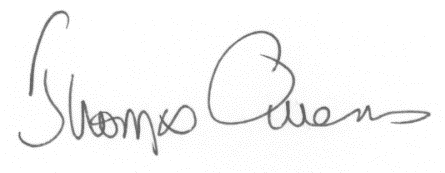 Thomas Owens